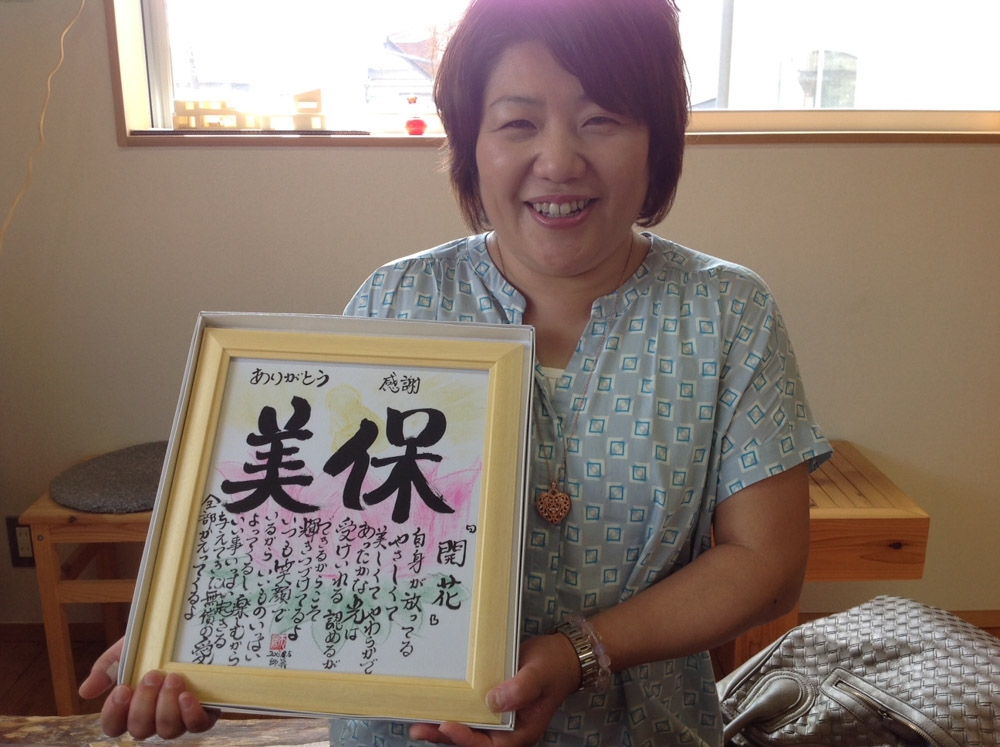 ありがとう　感謝
美保
『開花』
自身が放ってる
やさしくて
美しくて やわらかで
あったかな 光は
受けいれる 認めるが
できるからこそ
輝きつづけてるよ
いつも笑顔で
いるから いいものいっぱい
よってくるし 楽しむから
いい事いっぱい起きる
与えてきた無償の愛
全部かえってくるよ